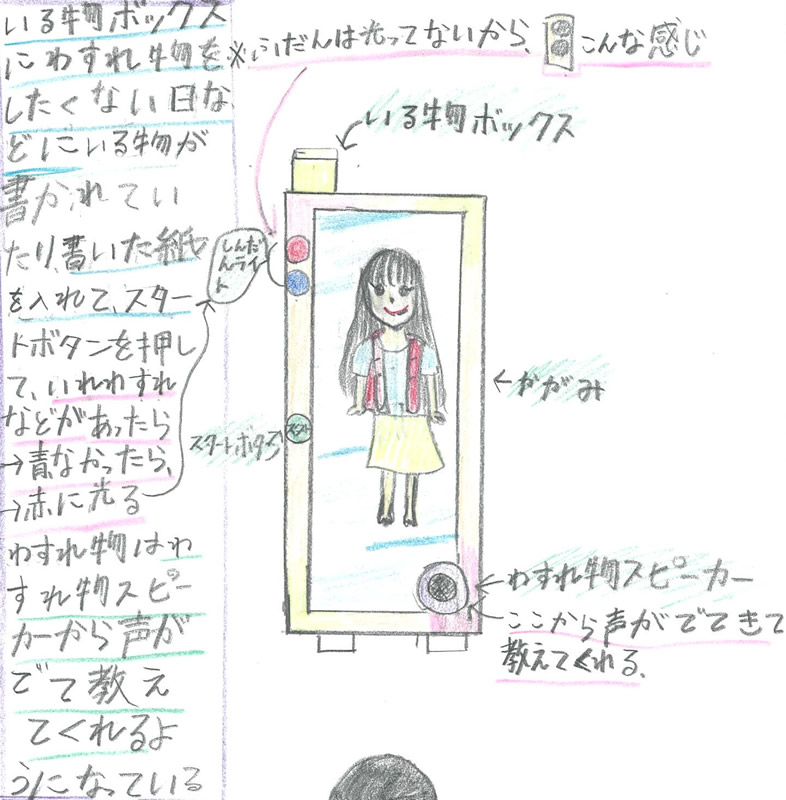 いる物ボックス
にわすれ物を
したくない日な
どにいる物が
書かれてい
たり、書いた紙
を入れて、スター
トボタンを押し
て、いれわすれ
などがあったら
→青なかったら、
→赤に光る
わすれ物はわ
すれ物スピー
カーから声が
でて教え
てくれるよ
うになっている
※ふだんは光ってないから、こんな感じ
いる物ボックス
しんだ
んライ
ト
スタート
スタートボタン
←かがみ
←わすれ物スピーカー
←ここから声がでてきて
教えてくれる。